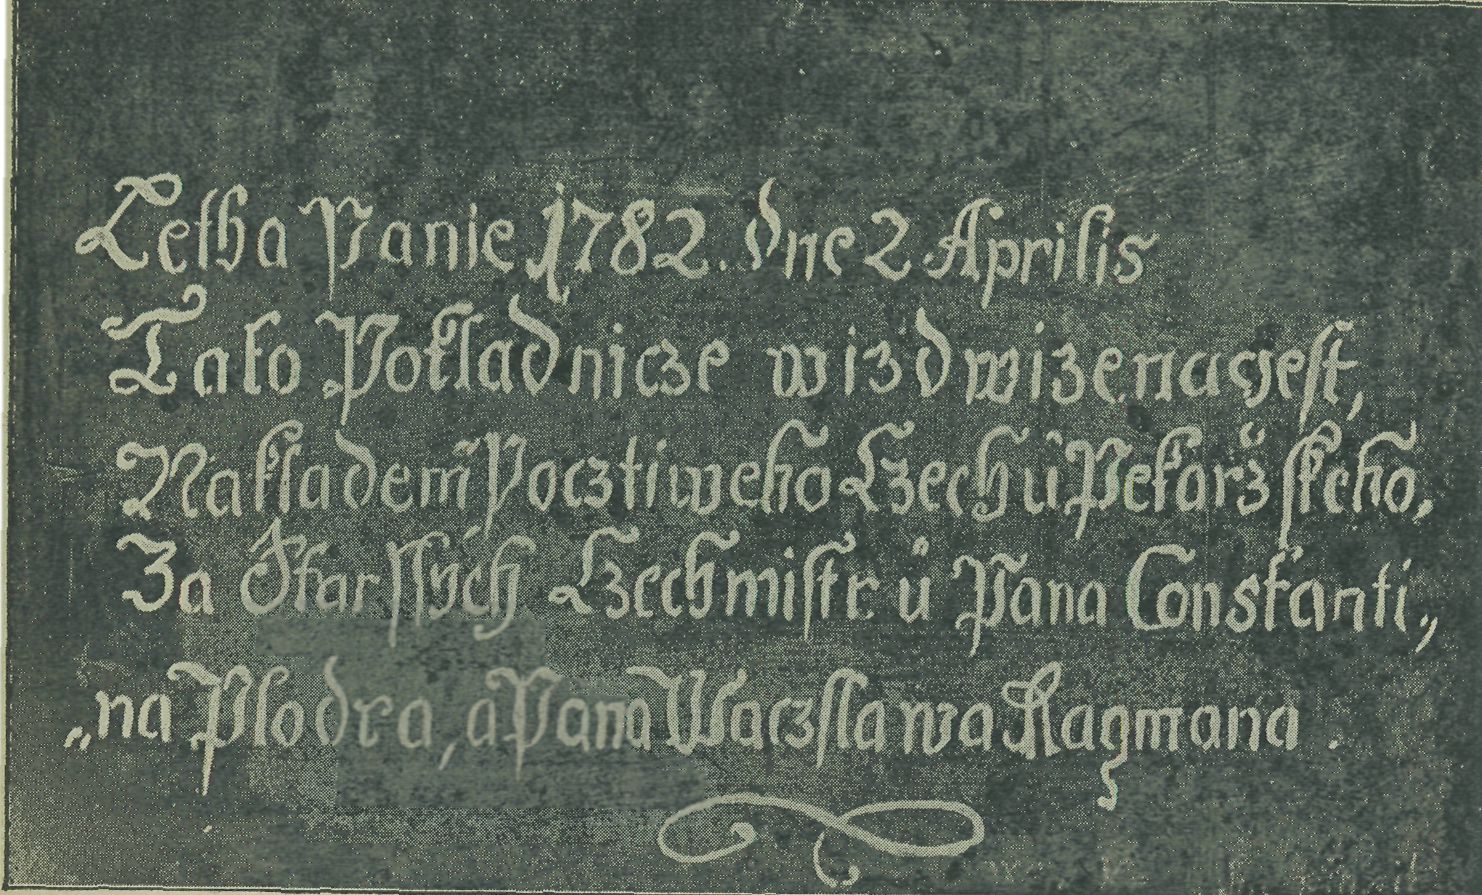 Letha Panie 1782. dne 2 Aprilis
Tato Pokladnicze wizdwizena gest,
Nakladem Pocztiweho Czechů Pekařzskeho,
Za Starssých Czechmistrů Pana Constanti„
„na Plodra, a Pana Waczslawa Kagmana.